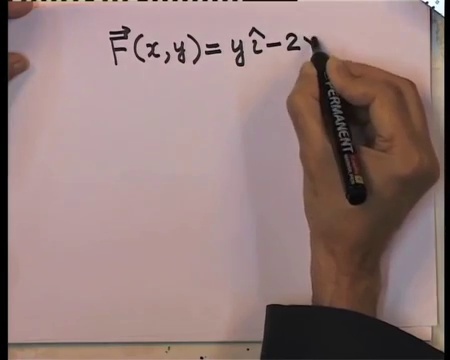 F⃗(x,y) = y î − 2
PERMANENT